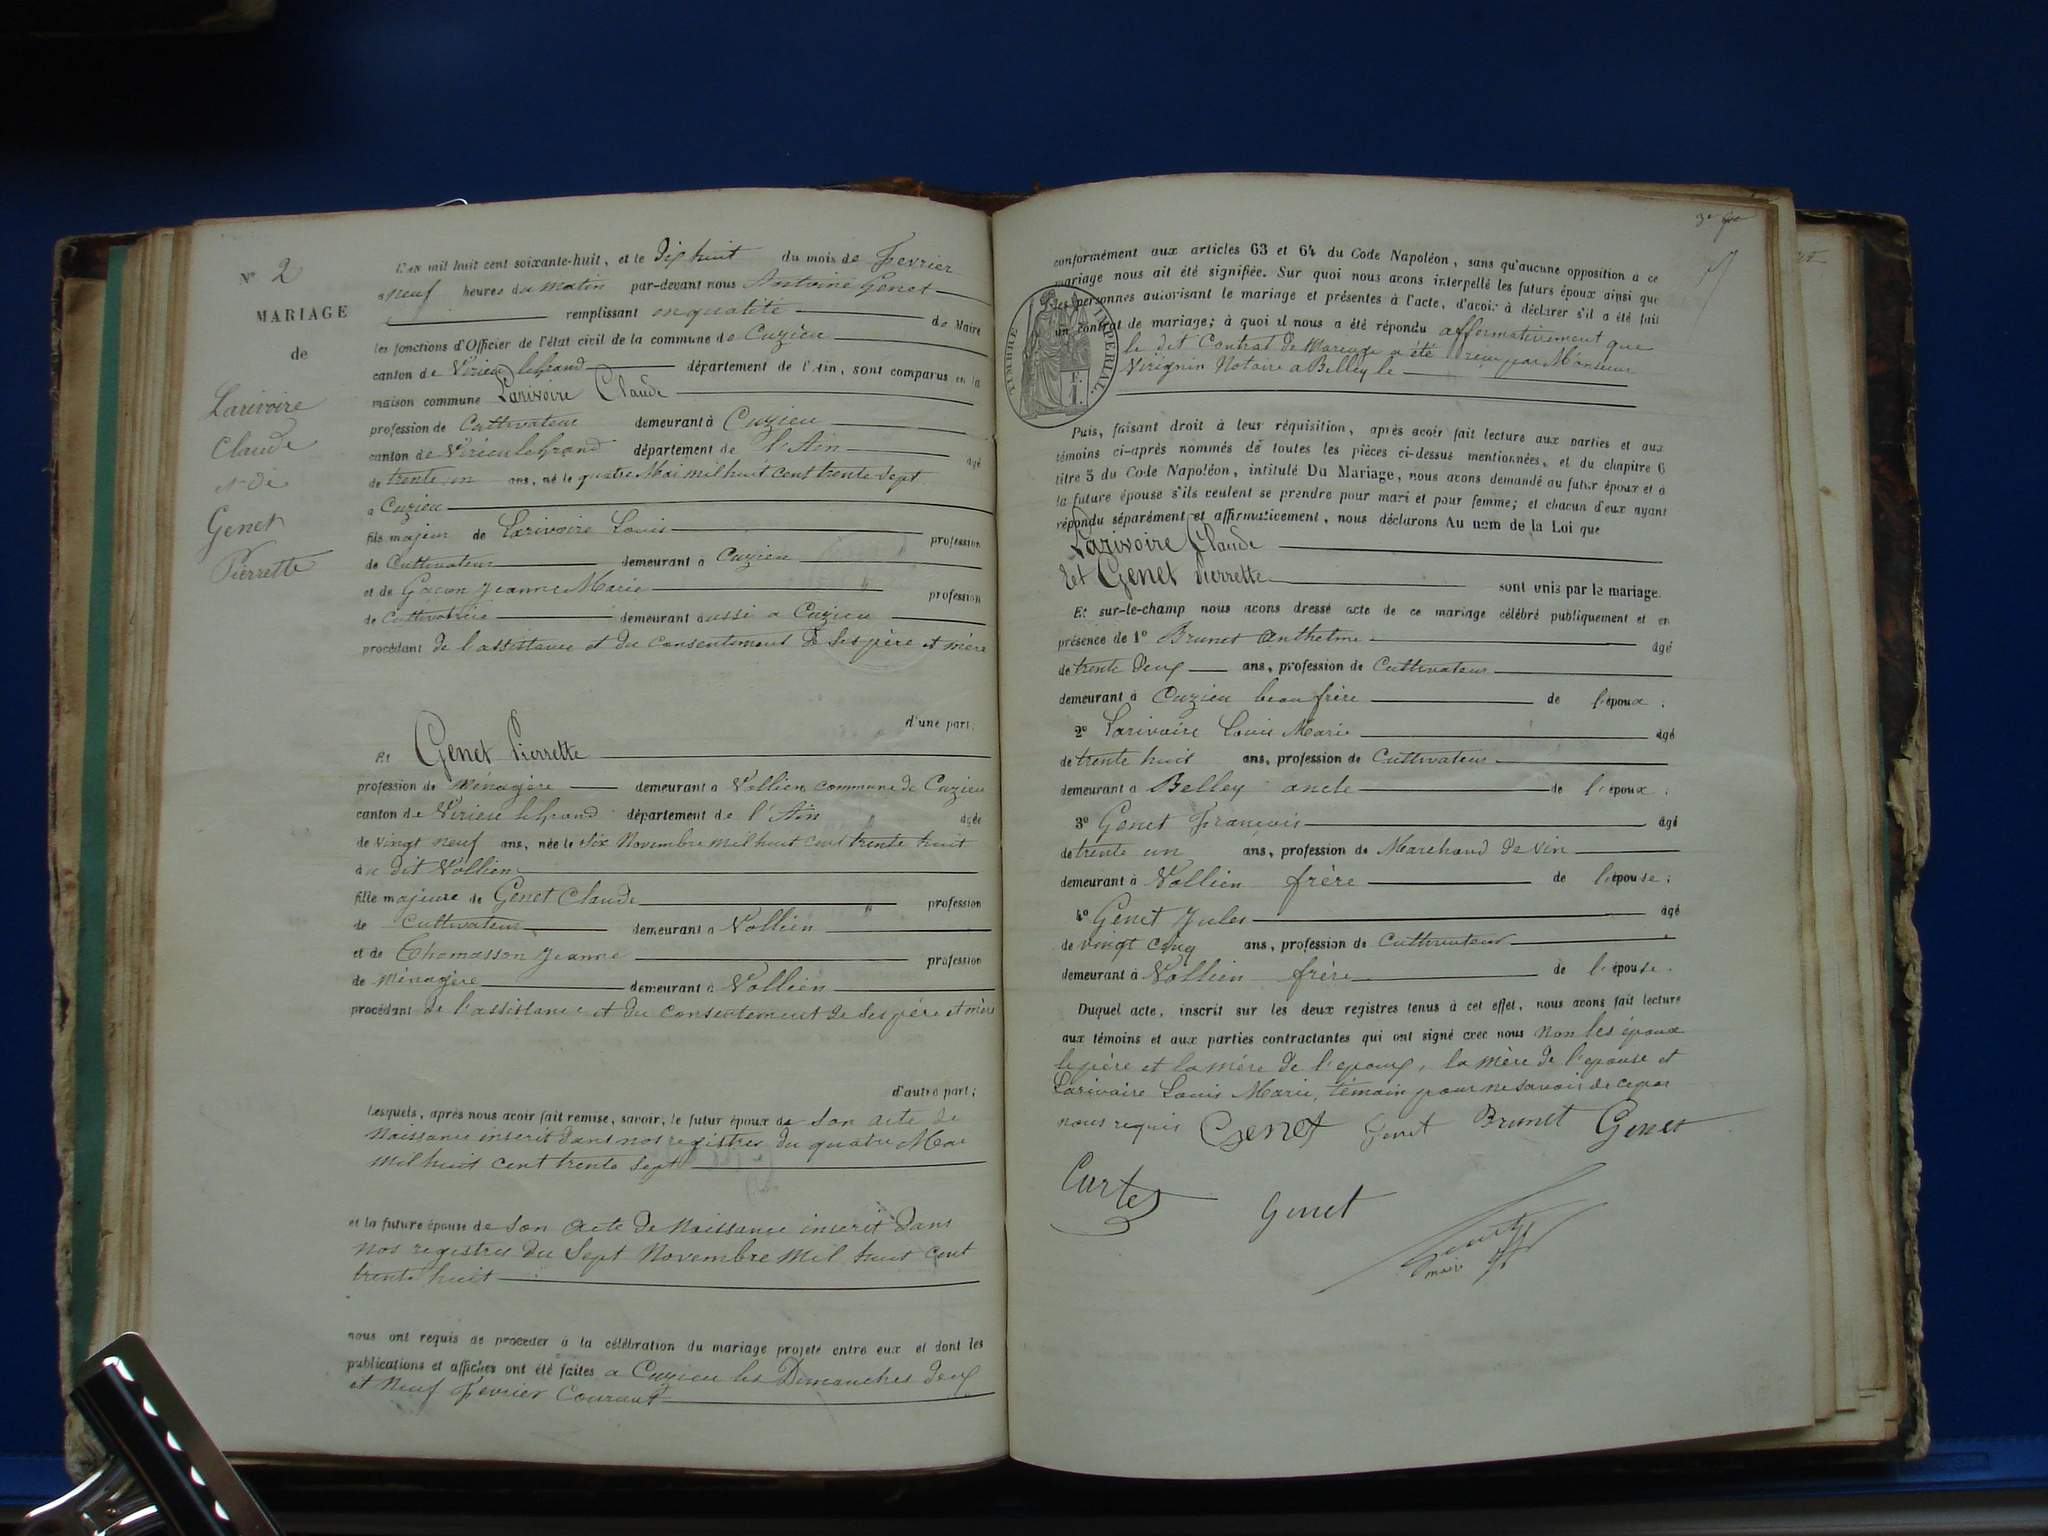 N° 2
MARIAGE
de
Larivoire
Claude
et de
Genet
Pierrette
L'an mil huit cent soixante-huit, et le Dix huit du mois de Fevrier
a neuf heures du matin par-devant nous Antoine Genet
remplissant en qualité de Maire
les fonctions d'Officier de l'état civil de la commune de Cuzieu
canton de Virieu le grand département de l'Ain, sont comparus en la
maison commune Larivoire Claude
profession de Cultivateur demeurant à Cuzieu
canton de Virieu le grand département de l'Ain agé
de trente un ans, né le quatre Mai mil huit cent trente sept
a Cuzieu
fils majeur de Larivoire Louis profession
de Cultivateur demeurant a Cuzieu
et de Gacon Jeanne Marie profession
de Cultivatrice demeurant aussi a Cuzieu
procédant de l'assistance et du consentement de Ses père et mère
d'une part;
Et Genet Pierrette
profession de Ménagère demeurant a Vollien commune de Cuzieu
canton de Virieu le grand département de l'Ain agée
de vingt neuf ans, née le Six Novembre mil huit cent trente huit
au dit Vollien
fille majeure de Genet Claude profession
de Cultivateur demeurant a Vollien
et de Thomasson Jeanne profession
de Ménagère demeurant à Vollien
procédant de l'assistance et du consentement de Ses père et mère
d'autre part;
Lesquels, après nous avoir fait remise, savoir, le futur époux de son acte de
Naissance inscrit dans nos registres du quatre Mai
mil huit cent trente sept
et la future épouse de son acte de Naissance inscrit dans
nos registres du Sept Novembre mil huit cent
trente huit
nous ont requis de procéder à la célébration du mariage projeté entre eux et dont les
publications et affiches ont été faites a Cuzieu les Dimanches deux
et Neuf Fevrier Courant
conformément aux articles 63 et 64 du Code Napoléon, sans qu'aucune opposition a ce
mariage nous ait été signifiée. Sur quoi nous avons interpellé les futurs époux ainsi que
les personnes autorisant le mariage et présentes à l'acte, d'avoir à déclarer s'il a été fait
un contrat de mariage; à quoi il nous a été répondu affermativement que
le dit Contrat de Mariage a été reçu par Monsieur
Virignin Notaire a Belley le
TIMBRE IMPERIAL
1 F.
Puis, faisant droit à leur réquisition, après avoir fait lecture aux parties et aux
témoins ci-après nommés de toutes les pièces ci-dessus mentionnées, et du chapitre 6
titre 5 du Code Napoléon, intitulé Du Mariage, nous avons demandé au futur époux et à
la future épouse s'ils veulent se prendre pour mari et pour femme; et chacun d'eux ayant
répondu séparément et affirmativement, nous déclarons Au nom de la Loi que
Larivoire Claude
Et Genet Pierrette sont unis par le mariage.
Et sur-le-champ nous avons dressé acte de ce mariage célébré publiquement et en
présence de 1° Brunet Anthelme âgé
de trente deux ans, profession de Cultivateur
demeurant à Cuzieu beau frère de l'époux;
2° Larivoire Louis Marie âgé
de trente huit ans, profession de Cultivateur
demeurant a Belley oncle de l'époux;
3° Genet François âgé
de trente un ans, profession de Marchand de vin
demeurant à Vollien frère de l'épouse;
4° Genet Jules âgé
de vingt cinq ans, profession de Cultivateur
demeurant à Vollien frère de l'épouse.
Duquel acte, inscrit sur les deux registres tenus à cet effet, nous avons fait lecture
aux témoins et aux parties contractantes qui ont signé avec nous Non les époux
le père et la mère de l'époux, la mère de l'épouse et
Larivoire Louis Marie, témoin pour ne savoir de ce par
nous requis Genet Genet Brunet Genet
Curtes
Genet
maire